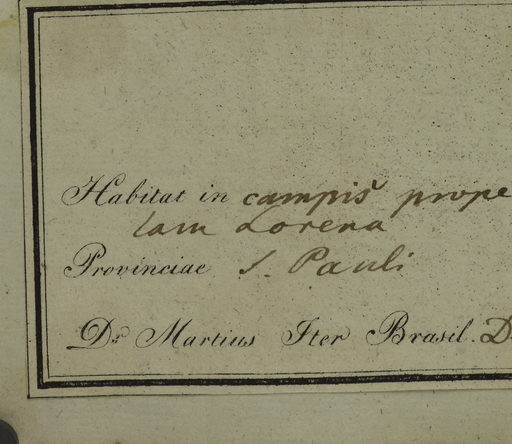 Habitat in campis prope
lam Lorena
Provinciae S. Pauli
Dr Martius Iter Brasil. D